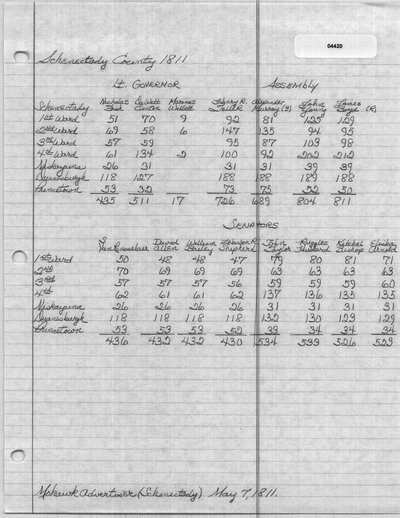 04420
Schenectady County 1811
Lt. Governor Assembly
Nicholas DeWitt Marinus Henry R. Alexander John James
Schenectady Fish Clinton Willett Teller Murray (F) Young Boyd (R)
1st Ward 51 70 9 92 81 122 129
2nd Ward 69 58 6 147 135 94 95
3rd Ward 57 59 95 87 103 98
4th Ward 61 134 2 100 92 202 212
Niskayuna 26 31 31 31 39 39
Duanesburgh 118 127 188 188 189 188
Princetown 53 32 73 75 52 50
435 511 17 726 689 804 811
Senators
S. Daniel William John Ruggles Kitchel Elisha
Van Rensselaer Allen Bailey Shepherd Taylor Hubbard Bishop Arnold
1st Ward 50 48 48 47 79 80 81 71
2nd 70 69 69 69 63 63 63 63
3rd 57 57 57 56 59 59 59 60
4th 62 61 61 62 137 136 135 135
Niskayuna 26 26 26 26 31 31 31 31
Duanesburgh 118 118 118 118 132 130 123 129
Princetown 53 53 53 52 33 34 34 34
436 432 432 430 534 533 526 523
Mohawk Advertiser (Schenectady). May 7, 1811.